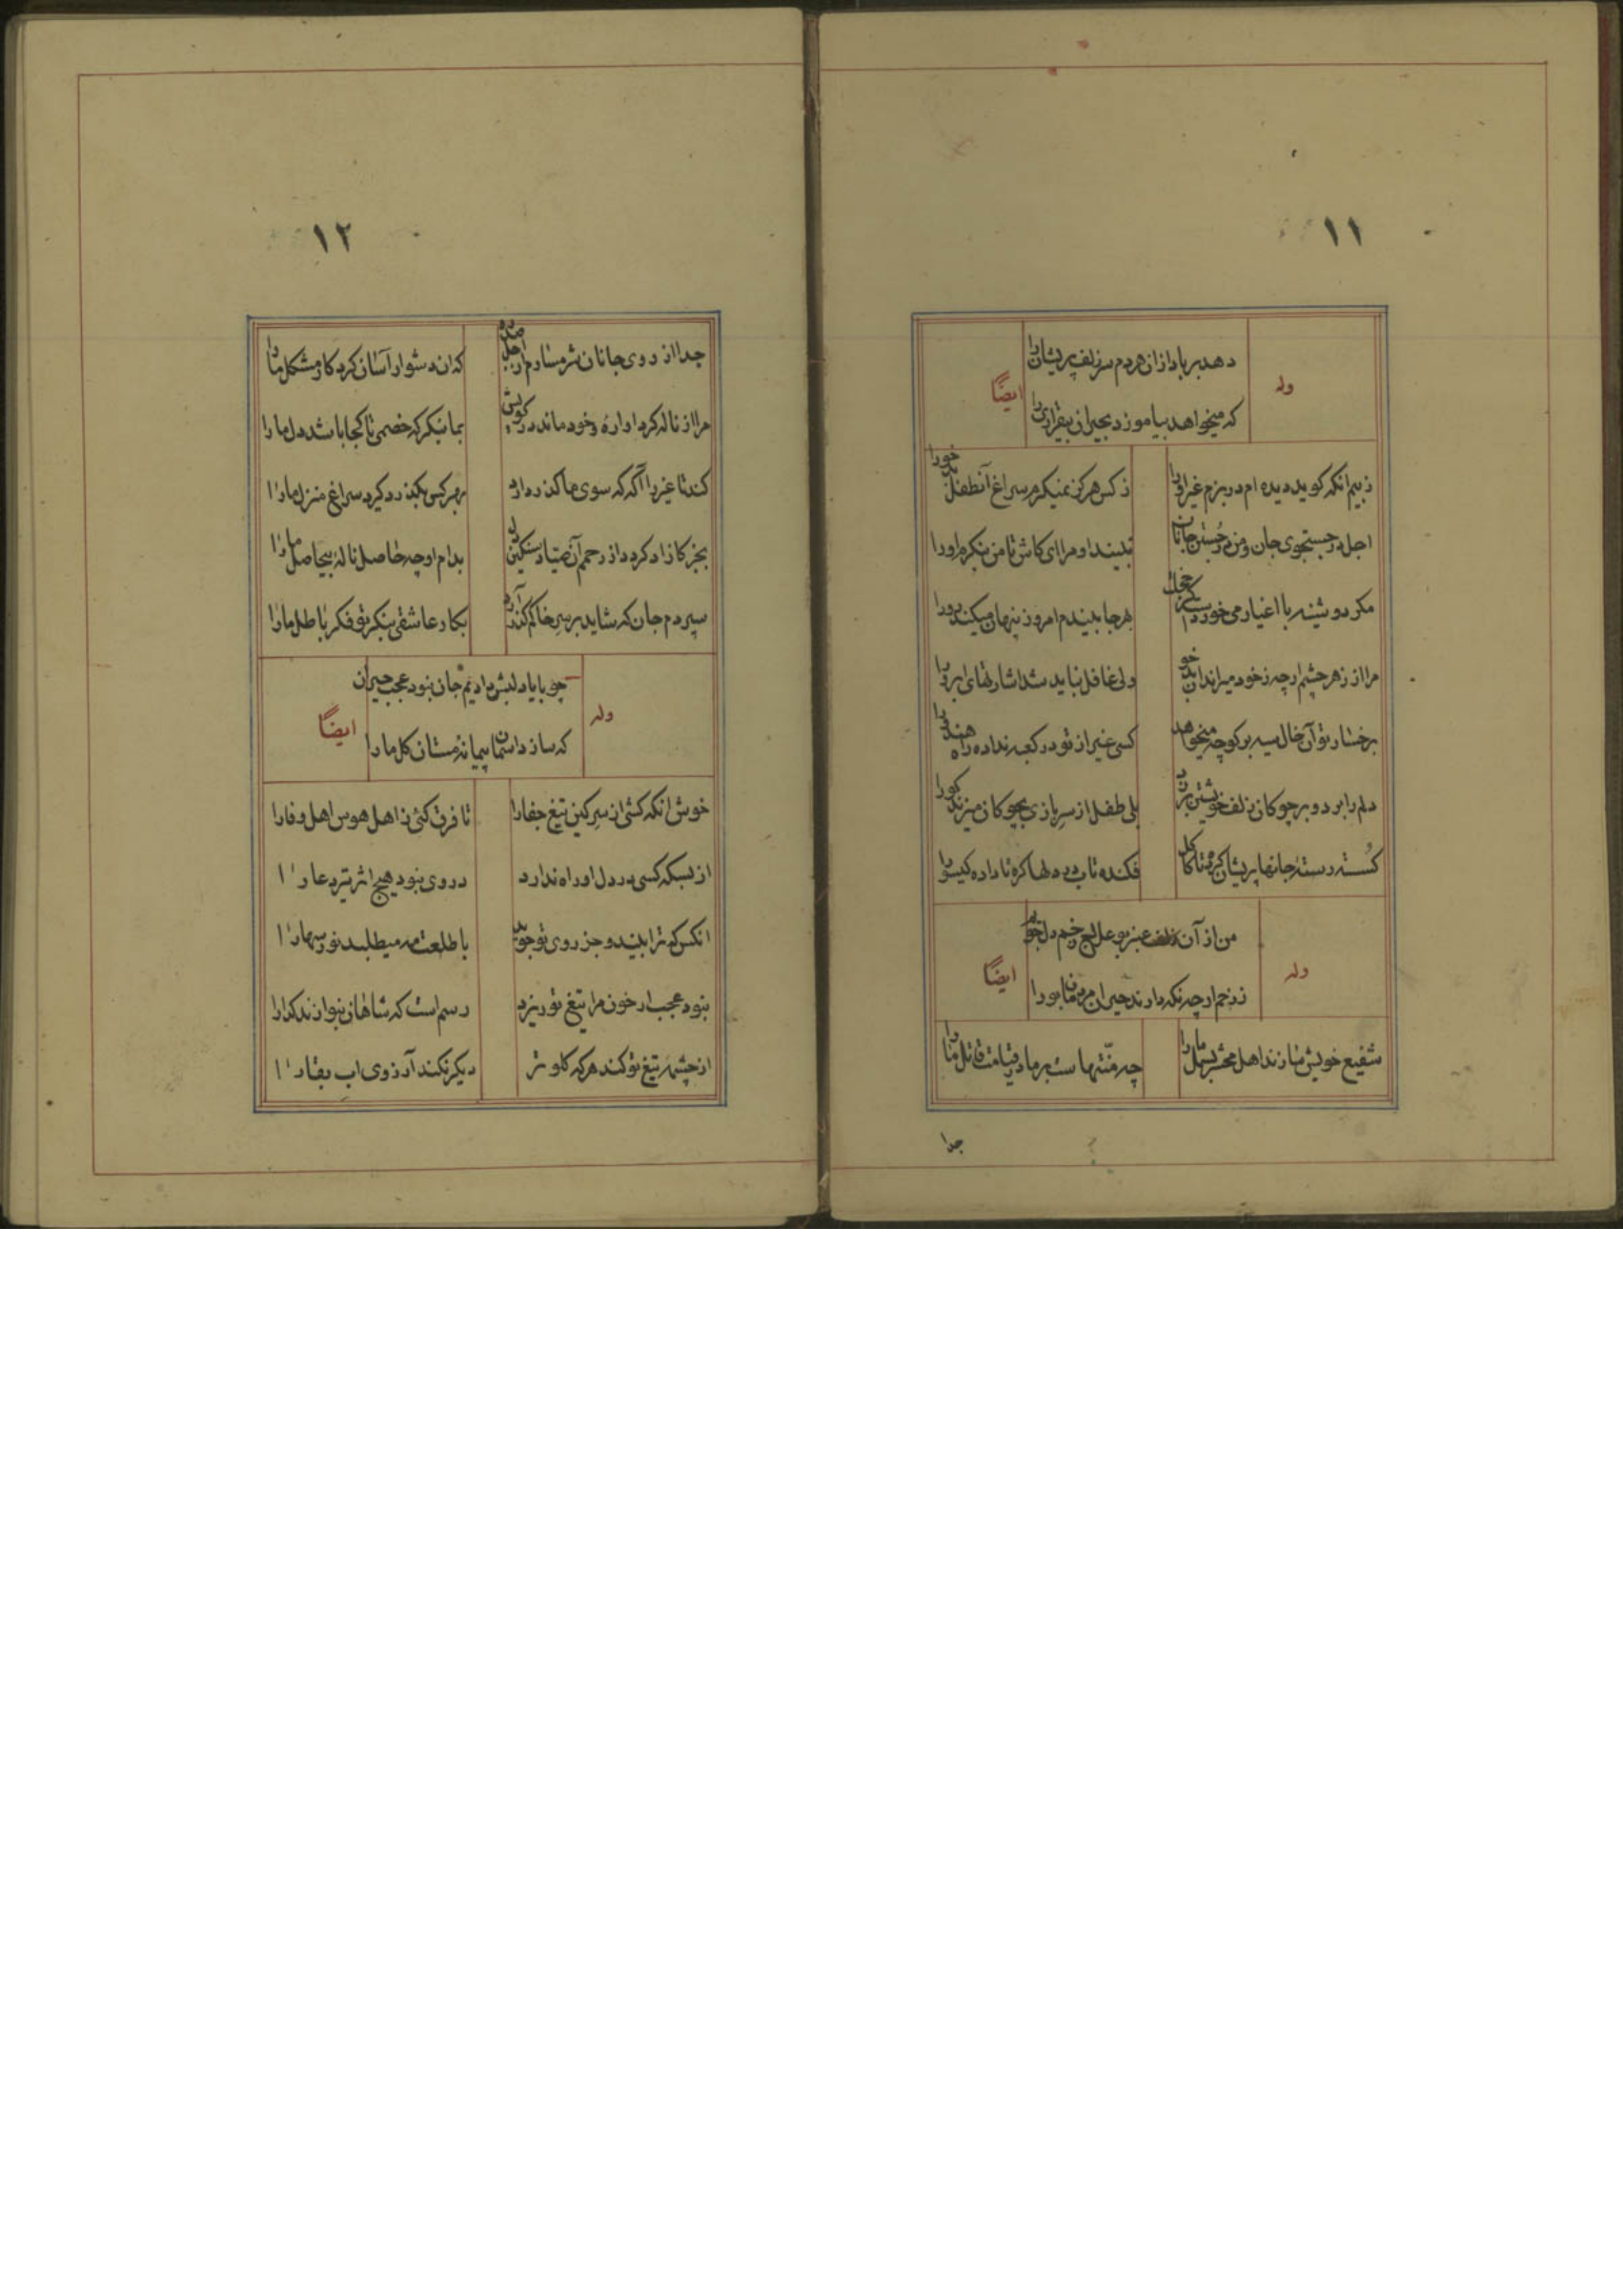 ۱۱
دهد بر باد ازان هردم سر زلف پریشان را
وله
ایضاً
که میخواهد بیاموزد بحیران بیقراری را
ز بیم انکه کوید دیده ام در بزم غیر او را
ز کس هرکز نمیکیرم سراغ آنطفل بد خو را
اجل در جستجوی جان و من در جستن جانان
نبیند او مرا ای کاش تا من بنکرم او را
مکر دوشینه با اغیار می خورد است کز خجلت
بهرجا بیندم امروز پنهان میکند رو را
مرا از زهر چشم ارچه ز خود میراند ان بد خو
ولی غافل نباید شد اشارتهای ابرو را
برخسار تو آن خال سیه برکو چه میخواهد
کسی غیر از تو در کعبه نداده راه هندو را
دلم را برد و بر چوکان زلف خویشتن بر زد
بلی طفل از سر بازی بچوکان میزند کو را
کسسته رسته جانها پریشان کرده تا کاکل
فکنده تاب در دلها کره تا داده کیسو را
من از آن زلف عنبر بو علاج زخم دل جویم
وله
ایضاً
ز زخم ارچه نکه دارند حیران مردمان بو را
شفیع خویش سازند اهل محشر بسمل ما را
چه منّتهاست بر ما در قیامت قاتل ما را
جدا
۱۲
جدا از روی جانان شرمسارم از اجل
که ان دشوار آسان کرد کار مشکل ما را
مرا از ناله کرد اواره و خود ماند در کویش
بما بنکر که خصمی تا کجا باشد دل ما را
کند تا غیر را آکه که سوی ما کذر دارد
بهر کس بکذرد کیرد سراغ منزل ما را
بجز کازاد کرد از رحمم آن صیاد سنکین دل
بدام او چه حاصل ناله بیحاصل ما را
سپردم جان که شاید بر سر خاکم کذر آرد
بکار عاشقی بنکر تو فکر باطل ما را
چو با یاد لبش دادیم جان نبود عجب حیران
وله
ایضاً
که سازد اسمان پیمانه مستان کل ما را
خوش انکه کشی از سر کین تیغ جفا را
تا فرق کنی ز اهل هوس اهل وفا را
از بسکه کسی در دل او راه ندارد
در وی نبود هیچ اثر تیر دعا را
انکس که ترا بیند و جز روی تو جوید
با طلعت مه میطلبد نور سها را
نبود عجب ار خون مرا تیغ تو ریزد
رسم است که شاهان بنوازند کدا را
از چشمه تیغ تو کند هر که کلو تر
دیکر نکند آرزوی اب بقا را